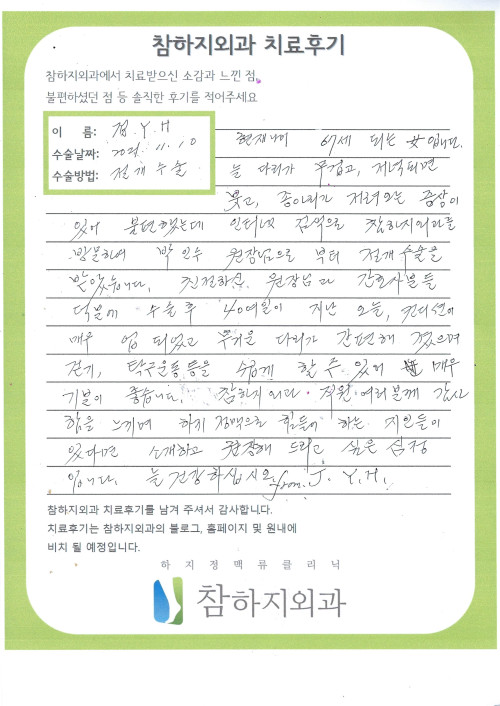 참하지외과 치료후기
참하지외과에서 치료받으신 소감과 느낀 점,
불편하셨던 점 등 솔직한 후기를 적어주세요
이 름: 정.Y.H
수술날짜: 2021.11.10
수술방법: 절개수술
현재나이 67세 되는 女입니다.
늘 다리가 무겁고, 저녁되면
붓고, 종아리가 저려오는 증상이
있어 불편했는데 인터넷 검색으로 참하지외과를
방문하여 박인수 원장님으로 부터 절개수술을
받았습니다. 친절하신 원장님과 간호사분들
덕분에 수술후 40여일이 지난 오늘, 컨디션이
매우 업되었고 무거운 다리가 간편해 졌으며
걷기, 탁구운동등을 수월게 할수 있어 매우
기분이 좋습니다. 참하지외과 직원여러분께 감사
함을 느끼며 하지정맥으로 힘들어 하는 지인들이
있다면 소개하고 권장해 드리고 싶은 심정
입니다. 늘건강하십시요. from. J. Y.H.
참하지외과 치료후기를 남겨 주셔서 감사합니다.
치료후기는 참하지외과의 블로그, 홈페이지 및 원내에
비치 될 예정입니다.
하지정맥류클리닉
참하지외과